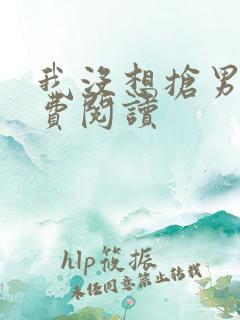 我沒想搶男
費閱讀
hlp筱振
未任同意禁止转载